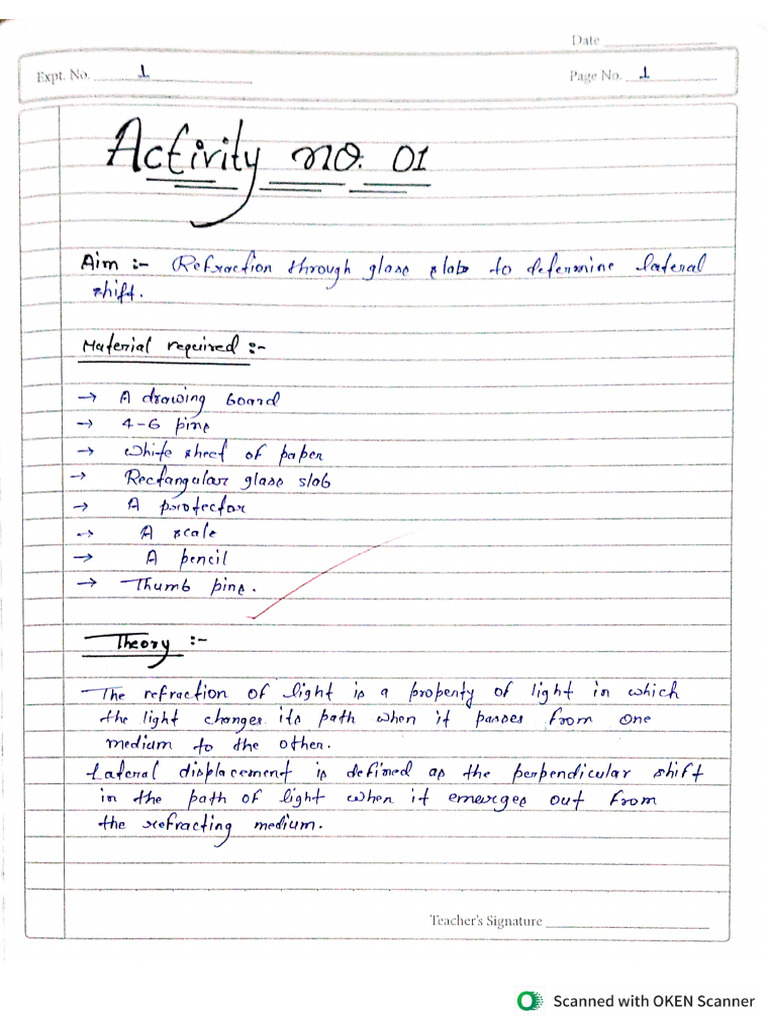 Date
Expt. No. 1
Page No. 1
Activity no. 01
Aim :- Refraction through glass slab to determine lateral
shift.
Material required :-
→ A drawing board
→ 4-6 pins
→ White sheet of paper
→ Rectangular glass slab
→ A protector
→ A scale
→ A pencil
→ Thumb pins.
Theory :-
The refraction of light is a property of light in which
the light changes its path when it passes from one
medium to the other.
Lateral displacement is defined as the perpendicular shift
in the path of light when it emerges out from
the refracting medium.
Teacher's Signature
Scanned with OKEN Scanner